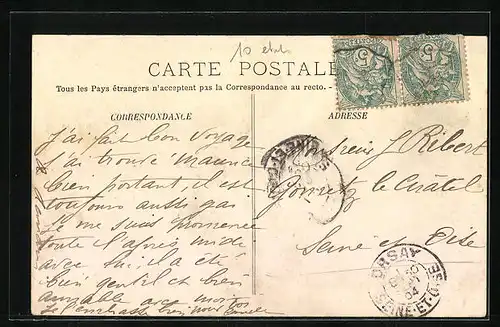 10 etabs
CARTE POSTALE
Tous les Pays étrangers n'acceptent pas la Correspondance au recto. -
CORRESPONDANCE
ADRESSE
J'ai fait bon voyage
j'ai trouvé Maurice
bien portant, il est
toujours aussi gai
Je me suis promenée
toute l'après midi
avec lui, il a été
bien gentil et bien
aimable avec moi
Je t'embrasse bien
J Ribert
Gometz le Châtel
Seine et Oise
5
5
ORSAY
04
SEINE-ET-OISE